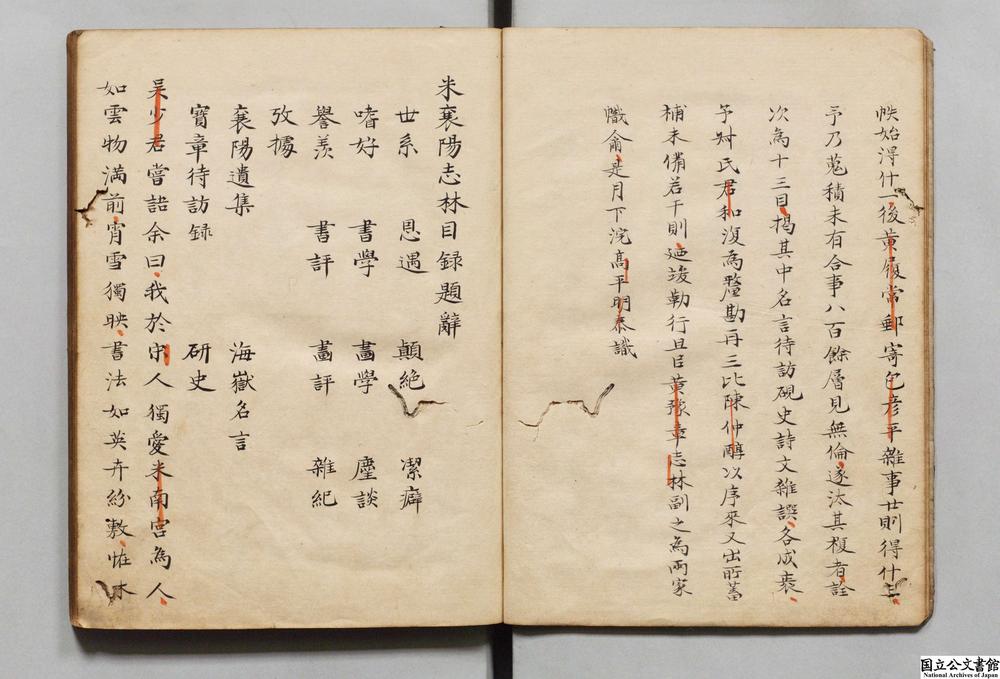 帙始得什一後黄履常郵寄包彦平雜事廿則得什三
予乃蒐積未有合事八百餘層見無倫遂汰其複者詮
次為十三目揭其中名言待訪硯史詩文雜譔各成袠
予財氏君和復為釐勘再三比陳仲醇以序來又出所蓄
補未備若干則廼竣勒行且臣黄豫章志林副之為兩家
幟龠是月下浣高平明泰識
米襄陽志林目録題辭
世系 恩遇 顛絶 潔癖
嗜好 書學 畫學 麈談
譽羨 書評 畫評 雜紀
攷據
襄陽遺集 海嶽名言
寶章待訪録 研史
吴少君嘗語余曰我於宋人獨愛米南宫為人
如雲物滿前宵雪獨映書法如英卉紛敷恠木
国立公文書館
National Archives of Japan